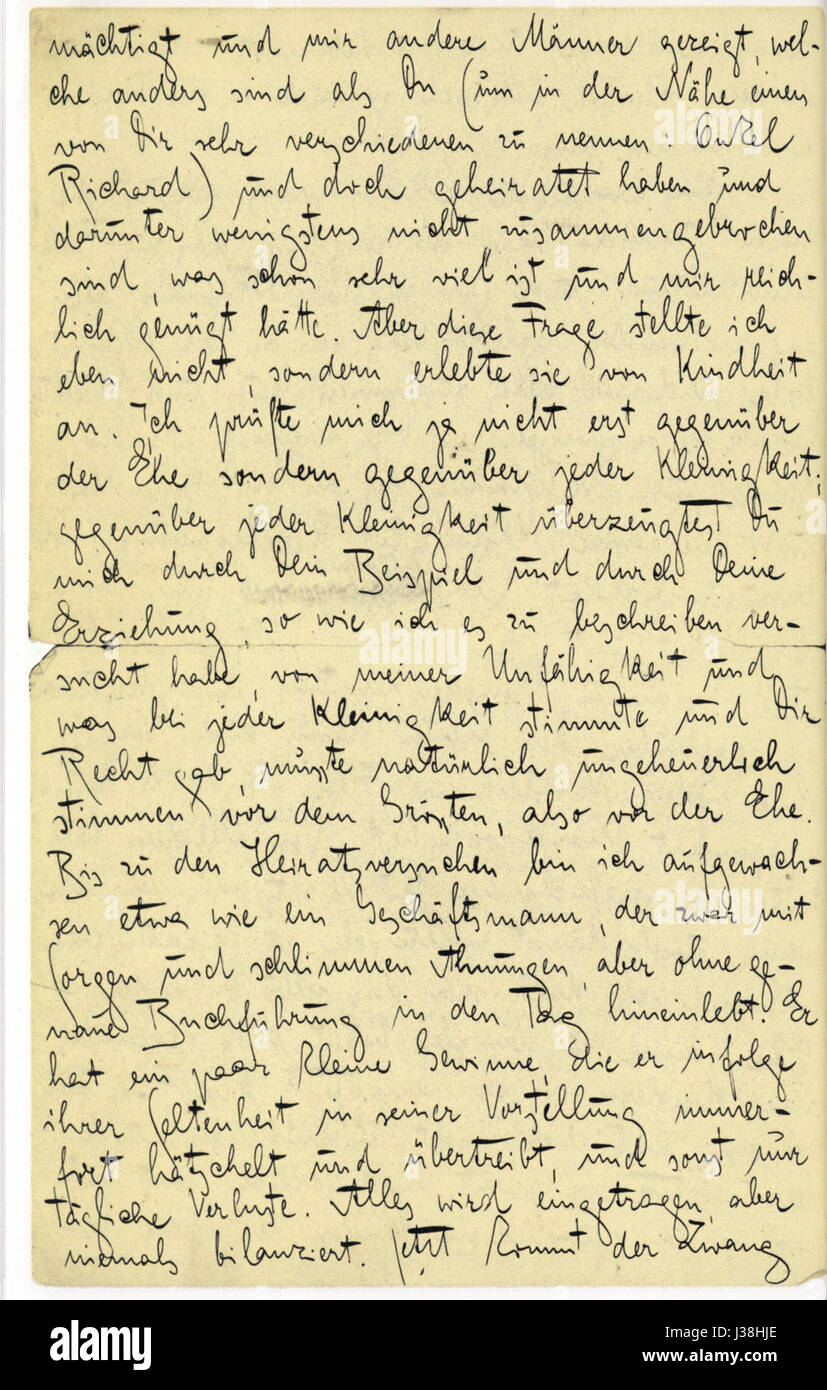 mächtigt und mir andere Männer gezeigt, wel-
che anders sind als Du (um in der Nähe einen
von Dir sehr verschiedenen zu nennen: Onkel
Richard) und doch geheiratet haben und
darunter wenigstens nicht zusammengebrochen
sind, was schon sehr viel ist und mir reich-
lich genügt hätte. Aber diese Frage stellte ich
eben nicht, sondern erlebte sie von Kindheit
an. Ich prüfte mich ja nicht erst gegenüber
der Ehe sondern gegenüber jeder Kleinigkeit;
gegenüber jeder Kleinigkeit überzeugtest Du
mich durch Dein Beispiel und durch Deine
Erziehung, so wie ich es zu beschreiben ver-
sucht habe, von meiner Unfähigkeit und
was bei jeder Kleinigkeit stimmte und Dir
Recht gab, musste natürlich ungeheuerlich
stimmen vor dem Grössten, also vor der Ehe.
Bis zu den Heiratsversuchen bin ich aufgewach-
sen etwa wie ein Geschäftsmann, der zwar mit
Sorgen und schlimmen Ahnungen, aber ohne ge-
naue Buchführung in den Tag hineinlebt. Er
hat ein paar kleine Gewinne, die er infolge
ihrer Seltenheit in seiner Vorstellung immer-
fort hätschelt und übertreibt, und sonst nur
tägliche Verluste. Alles wird eingetragen, aber
niemals bilanziert. Jetzt kommt der Zwang
alamy
J38HJE
www.alamy.com